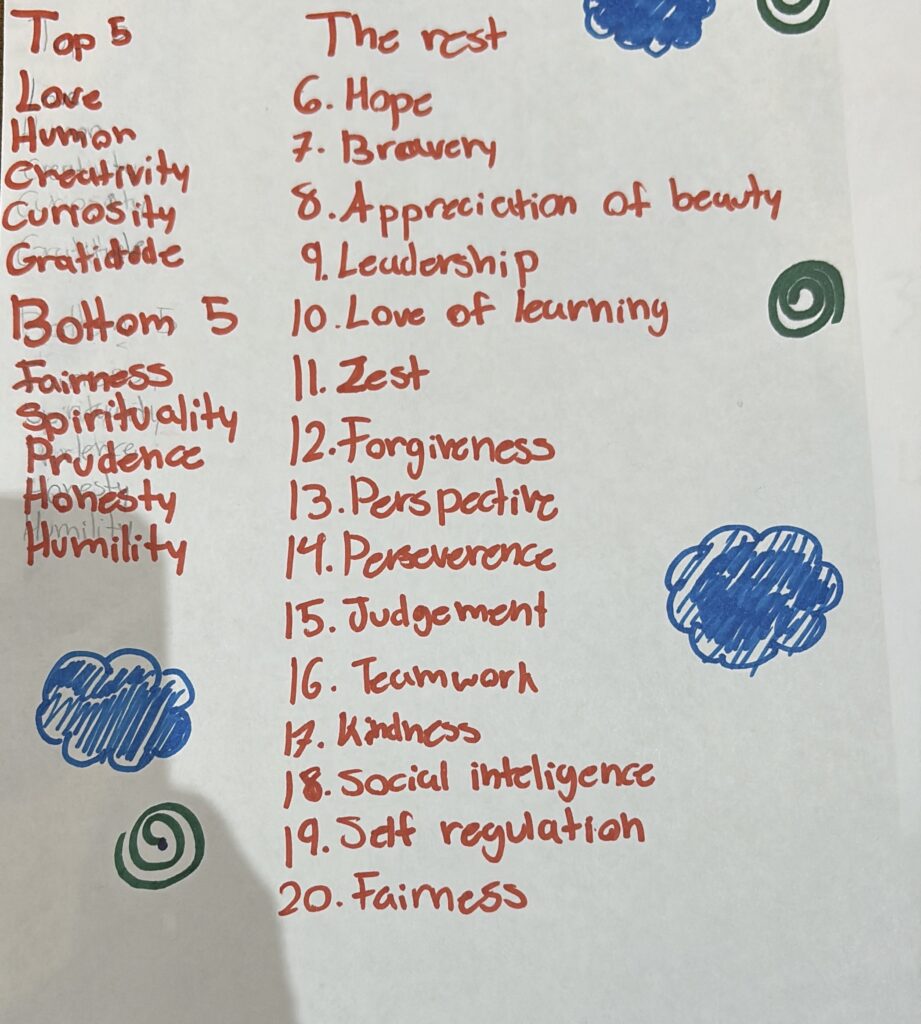 Top 5
Love
Humor
Creativity
Curiosity
Gratidude
Bottom 5
Fairness
Spirituality
Prudence
Honesty
Humility
The rest
6. Hope
7. Bravery
8. Appreciation of beauty
9. Leadership
10. Love of learning
11. Zest
12. Forgiveness
13. Perspective
14. Perseverence
15. Judgement
16. Teamwork
17. Kindness
18. Social inteligence
19. Self regulation
20. Fairness